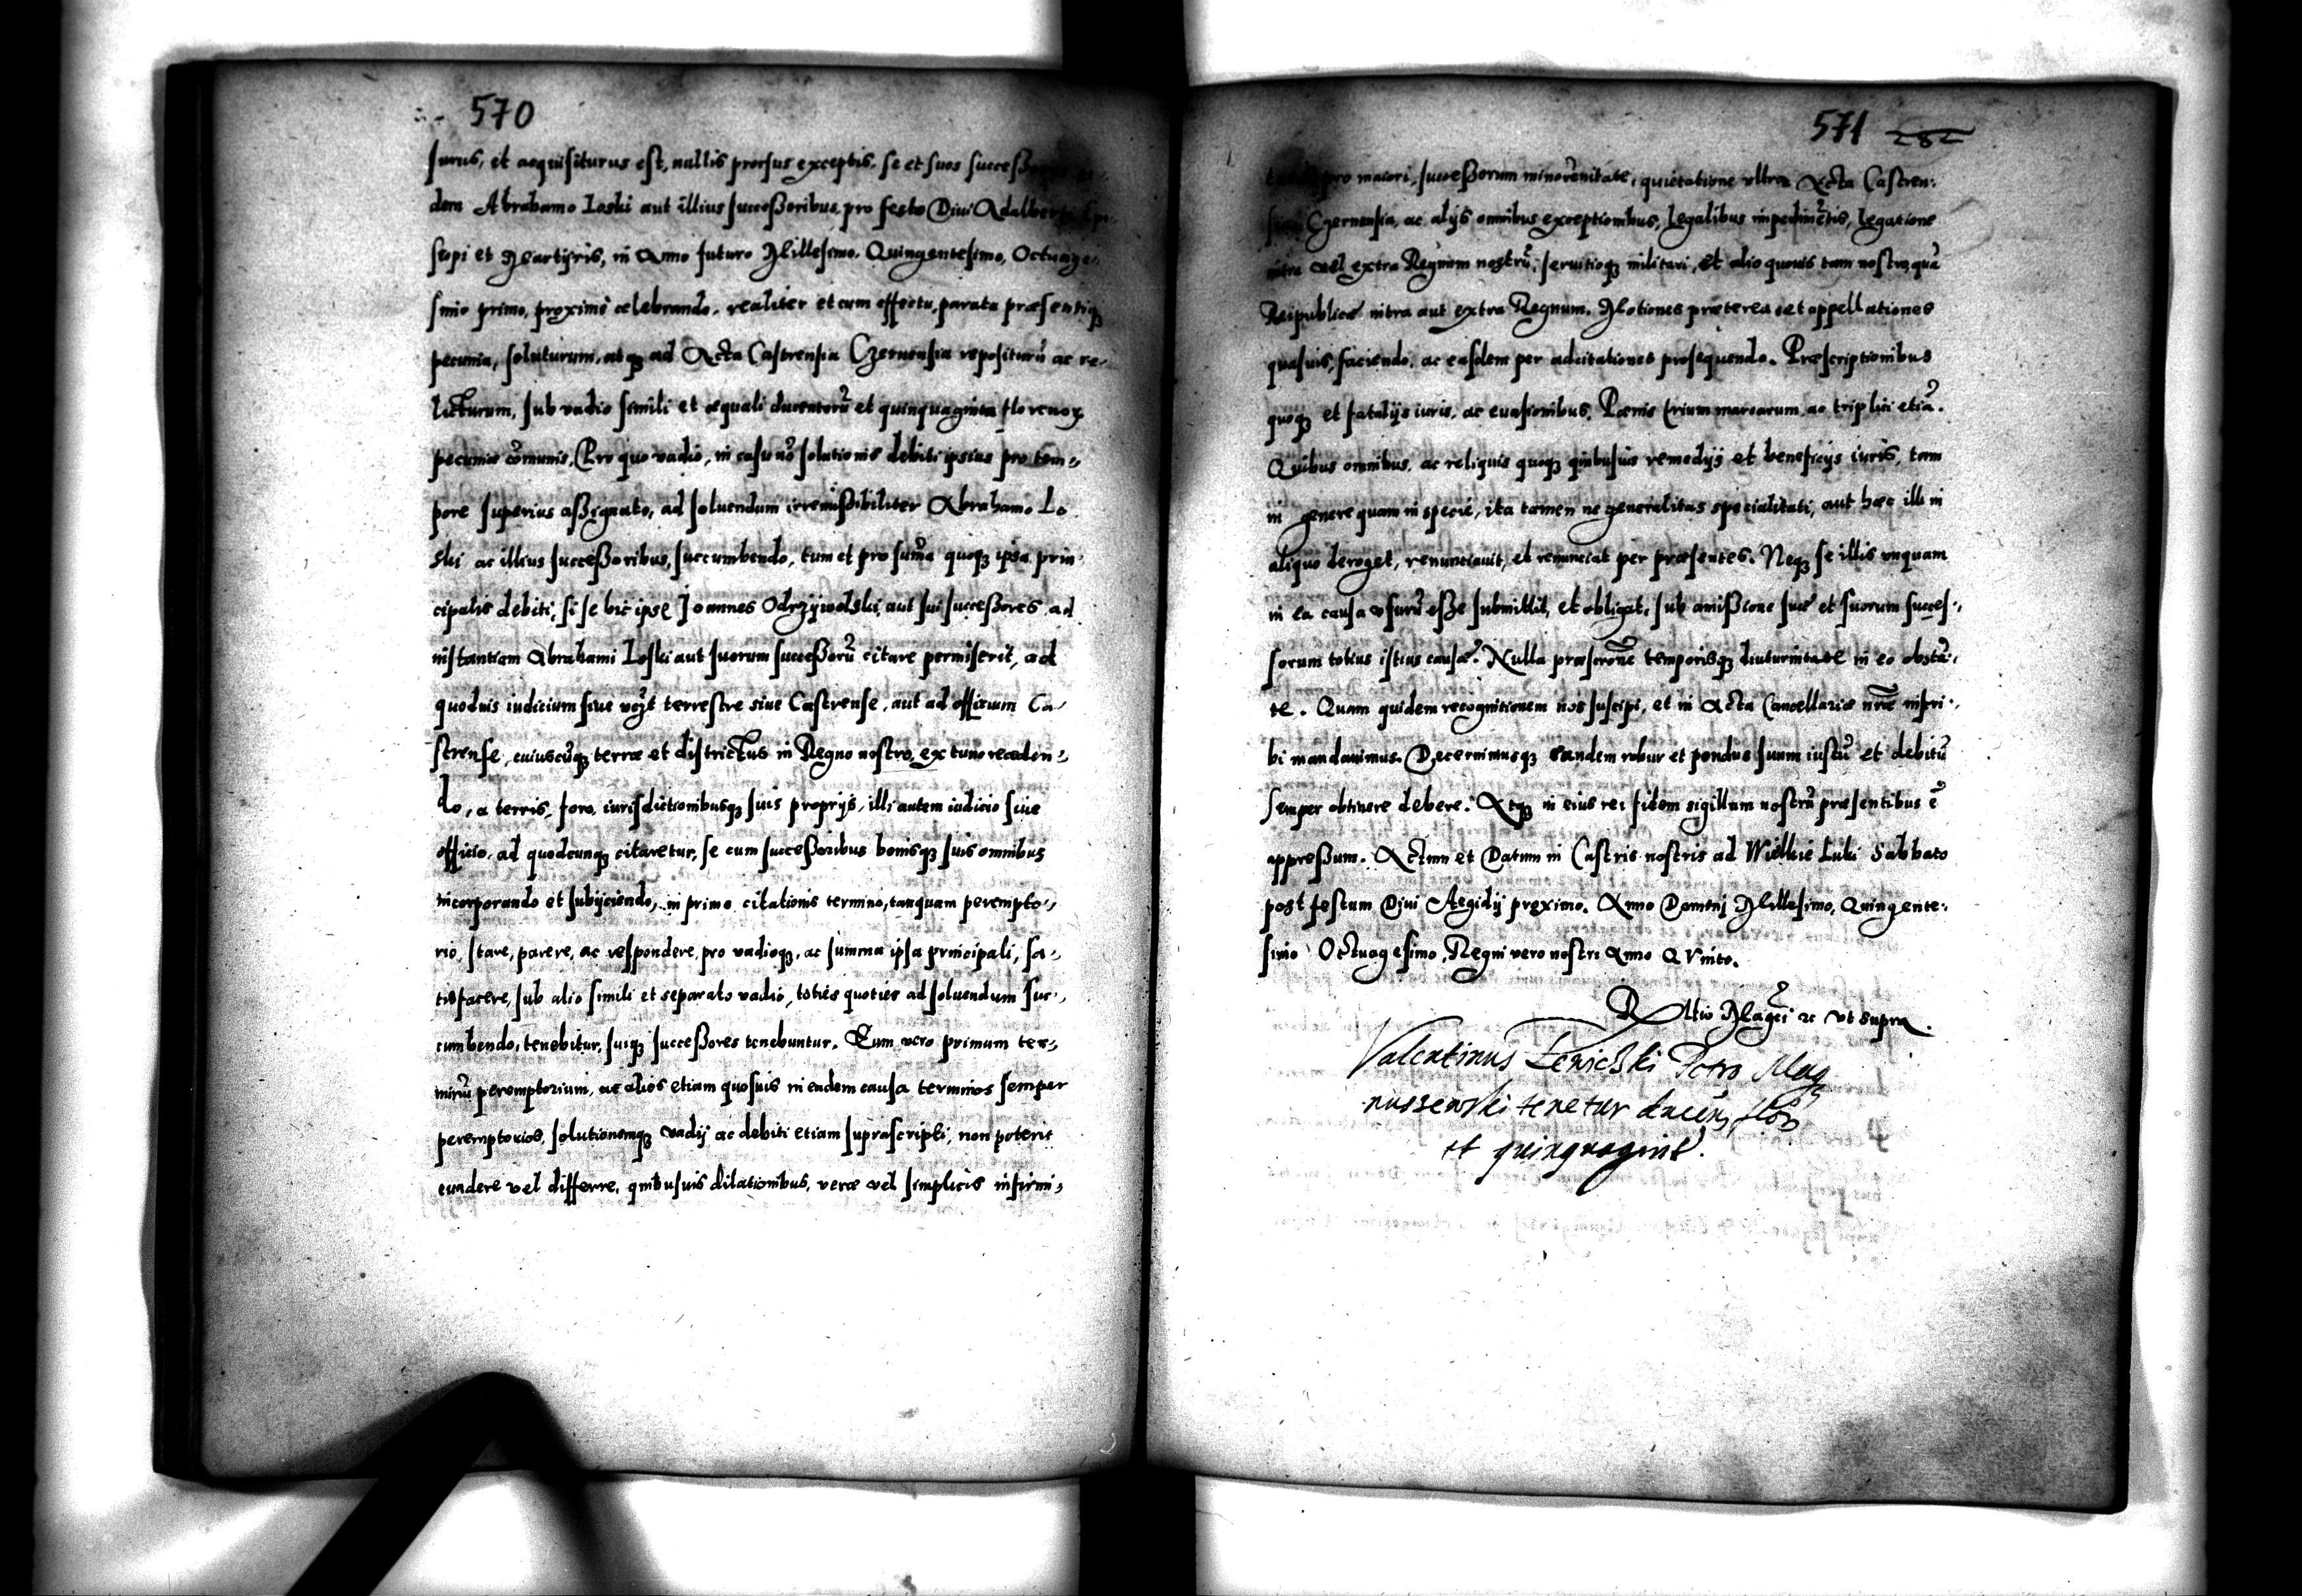 570
surus, et acquisiturus est, nullis prorsus exceptis, se et suos
dem Abrahamo Loski aut illius successoribus, pro festo Diui Adalberti Epi
scopi et Martyris, in Anno futuro Millesimo, Quingentesimo, Octuage-
simo primo, proximè celebrando, realiter et cum effectu, parata præsentiq₃
pecunia, soluturum, atq₃ ad Acta Castrensia Czernensia repositurũ ac re-
licturum, sub vadio simili et æquali ducentorũ et quinquaginta florenoꝝ
pecuniæ cõmunis, Pro quo vadio, in casu nõ solutionis debiti ipsius pro tem-
pore superius assignato, ad soluendum irremissibiliter Abrahamo Lo
ski ac illius successoribus, succumbendo, tum et pro sum̃a quoq₃ ipsa prin-
cipalis debiti, si se hic ipse Ioannes Odrzywolski, aut sui successores, ad
instantiam Abrahami Loski aut suorum successorũ citare permiserit, ad
quoduis iudicium siue terrestre siue Castrense, aut ad officium Ca-
strense, cuiuscũq₃ terræ et districtus in Regno nostro, ex tunc receden-
do, a terris, foro, iurisdictionibusq₃ suis proprijs, illi autem iudicio siue
officio, ad quodcunq₃ citaretur, se cum successoribus bonisq₃ suis omnibus
incorporando et subijciendo, in primo citationis termino, tanquam perempto-
rio, stare, parere, ac respondere, pro vadioq₃, ac summa ipsa principali, sa-
tisfacere, sub alio simili et separato vadio, toties quoties ad soluendum suc-
cumbendo, tenebitur, suiq₃ successores tenebuntur. Eum vero primum ter-
minũ peremptorium, ac alios etiam quosuis in eadem causa terminos semper
peremptorios, solutionemq₃ vadij ac debiti etiam suprascripti, non poterit
euadere vel differre, quibusuis dilationibus, veræ vel simplicis infirmi-
571 282
pro maiori, successorum minorẽnitate, quietatione vltra Acta Castren-
Czernensia, ac alijs omnibus exceptionibus, legalibus impedimẽtis, legatione
intra vel extra Regnum nostrũ, seruitioq₃ militari, et alio quouis tam nostro, quã
Reipublicæ intra aut extra Regnum. Motiones præterea et appellationes
quasuis, faciendo, ac easdem per adcitationes prosequendo. Præscriptionibus
quoq₃ et fatalijs iuris, ac euasionibus, Pœnis trium marcarum, ac triplici etiã.
Quibus omnibus, ac reliquis quoq₃ quibusuis remedijs et beneficijs iuris, tam
in genere quam in specie, ita tamen ne generalitas specialitati, aut hæc illi in
aliquo deroget, renunciauit, et renunciat per præsentes. Neq₃ se illis vnquam
in ea causa vsurũ esse submittit, et obligat, sub amissione suæ et suorum succes-
sorum totius istius causæ. Nulla præscrone temporisq₃ diuturnitate in eo obstã-
te. Quam quidem recognitionem nos suscipi, et in Acta Cancellariæ nræ inscri-
bi mandauimus. Decernimusq₃ eandem robur et pondus suum iustũ et debitũ
semper obtinere debere. Atq₃ in eius rei fidem sigillum nostrũ præsentibus ẽ
appressum. Actum et Datum in Castris nostris ad Wielkie Luki Sabbato
post festum Diui Aegidij proximo. Anno Domini Millesimo, Quingente-
simo Octuagesimo, Regni vero nostri Anno QVinto.
Rltio Magci ꝛc vt supra.
Valentinus Petro Mag
nussewski tenetur ducen, flos
et quinquagint.